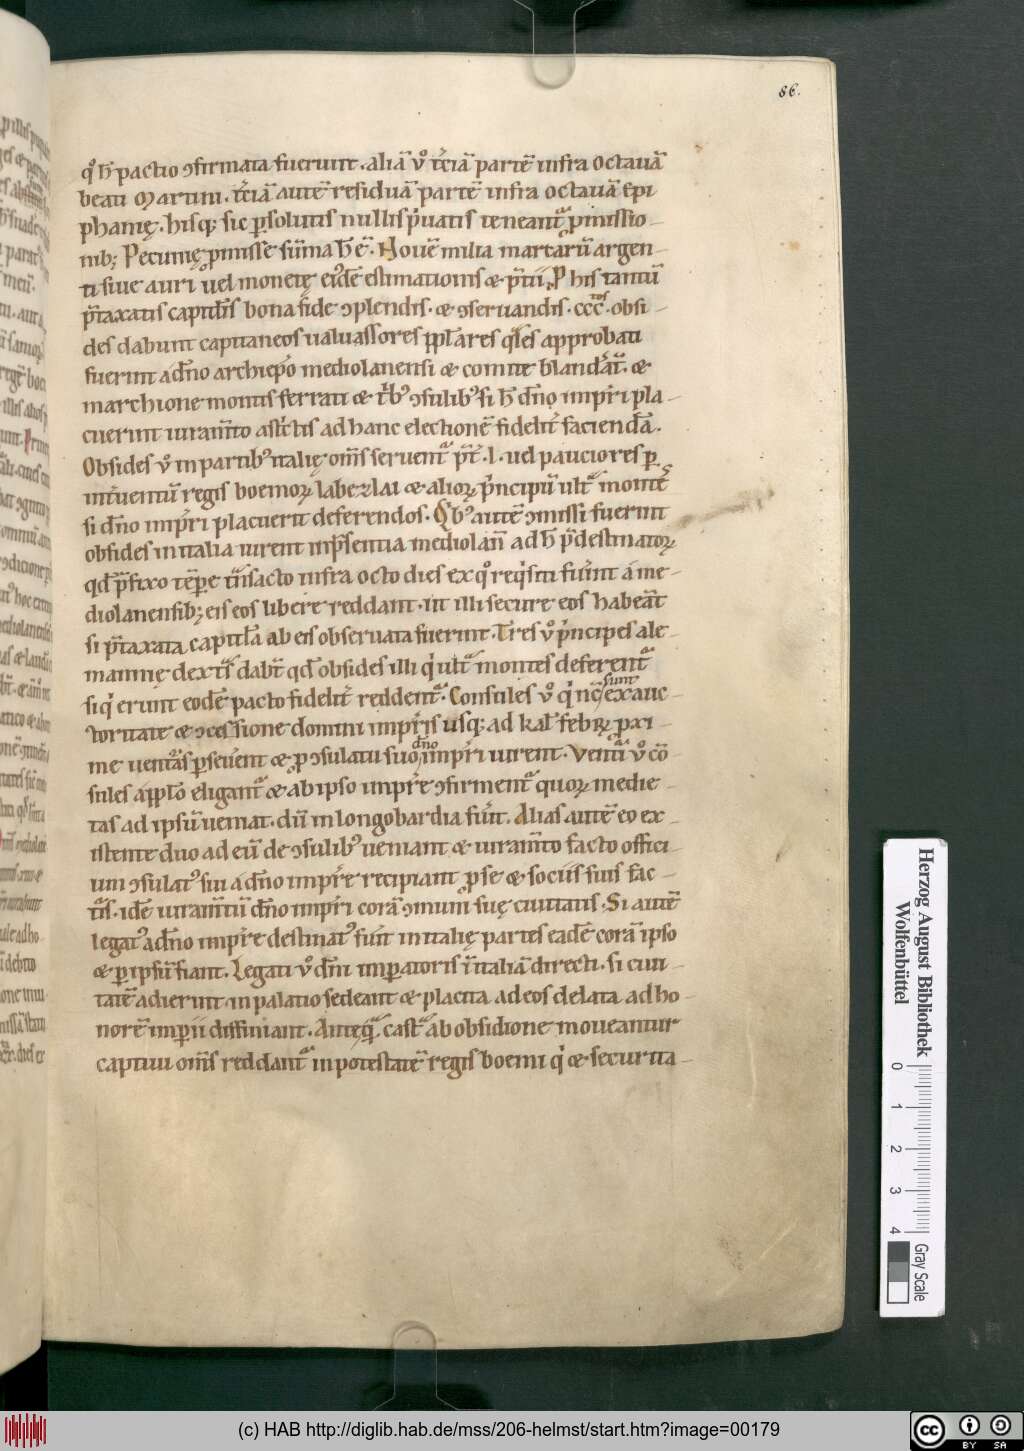 86.
qͦ h̄ pactio ɔfirmata fuerunt. aliā v̊ t̄ciā partē infra octauā
beati Martini. t̄ciā autē residuā partē infra octauā Epi
phanię. hisq; sic ꝑsolutis nullis p̍uatis teneant᷑ ꝓmissio-
nib; Pecunię ꝓmisse sūma h̄ ē. Nouē milia martarū argen-
ti siue auri uel monetę eiꝰdē estimationis & p̄tii. ꝑ his tantū
p̄taxatis capitulis bona fide ɔplendis. & ɔseruandis. ccc.tos obsi-
des dabunt captaneos ualuassores ppl̄ares qͣles approbati
fuerint a dn̄o archiep̄o mediolanensi & comite blandᷓat. &
marchione montis ferrati & tͥbꝰ ɔsulibꝰ si h̄ dn̄o imp̄ri pla-
cuerint iuram̄to astͥctis ad hanc electionē fidelit̄ faciendā.
Obsides v̊ in partibꝰ italię om̄s seruent᷑ p̄t̄. l. uel pauciores ꝑ
int̄uentū regis boemoꝝ labezlai & alioꝝ p̍ncipū ult᷑ monte
si dn̄o imp̄ri placuerit deferendos. Qͥbꝰ autē ɔmissi fuerint
obsides in italia iurent in p̄sentia mediolan̄ ad h̄ p̄destinatoꝝ
qd̄ p̄fixo tēpe tn̄sacto infra octo dies ex qͦ reqͥsiti fu̍int a me-
diolanensib; eis eos libere reddant. ut illi secure eos habeāt
si p̄taxata capitl̄a ab eis obseruata fuerint. Tres v̊ p̍ncipes ale-
mannie dext᷑s dabt̄ qd̄ obsides illi qͥ ult᷑ montes deferent᷑
siqͥ erunt eodē pacto fidelit̄ reddent᷑. Consules v̊ qͥ nc̄ sunt ex auc-
toritate & ɔcessione domini imp̄ris usq; ad kal̄ febrꝝ ꝓxi-
me uent᷑as ꝑseu̍ent & ꝓ ɔsulatu suo dn̄o imp̄ri iurent. Vent᷑i v̊ cō-
sules a ppl̄o eligant᷑ & ab ipso imp̄re ɔfirment᷑ quoꝝ medie-
tas ad ipsū ueniat. dū in longobardia fu̍it. Alias autē eo ex-
istente duo ad eū de ɔsulibꝰ ueniant & iuram̄to facto offici-
um ɔsulatꝰ sui a dn̄o imp̄re recipiant ꝑ se & sociis suis fac-
t᷑is. idē iuram̄tū dn̄o imp̄ri corā ɔmuni suę ciuitatis. Si autē
legatꝰ a dn̄o imp̄re destinatꝰ fu̍it in italię partes eadē corā ipso
& ꝑ ipsū fiant. Legati v̊ dn̄i imꝑatoris ī italiā directi. si ciui-
tatē adierint in palatio sedeant & placita ad eos delata ad ho-
norē imꝑii diffiniant. Anteqͣ castᷓ ab obsidione moueantur
captiui om̄s reddant᷑ in potestatē regis boemi qͥ & securita-
Herzog August Bibliothek
Wolfenbüttel
0 1 2 3 4
Gray Scale
(c) HAB http://diglib.hab.de/mss/206-helmst/start.htm?image=00179
cc BY SA